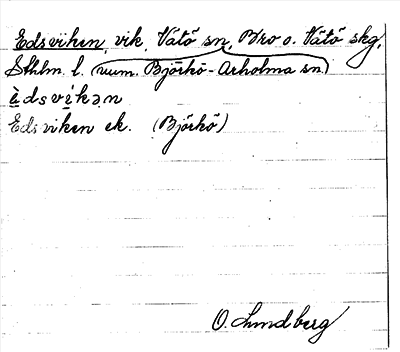 Edsviken, vik, Vätö sn, Bro o. Vätö skg,
Sthlm. l. (num. Björkö-Arholma sn)
è̀dsvíkən
Edsviken ek. (Björkö)
O. Lundberg